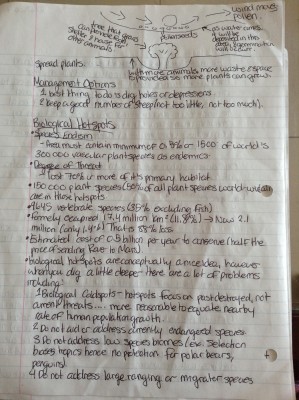 wind moves
pollen.
tree that grows
can provide
shelter & house for
other animals
downwards
as water comes
it will be
deposited in the
deep germination
will occur
with more animals, more waste & space
is provided so more plants can grow.
spread plants.
Management Options
1. best thing to do is dig holes or depressions
2. keep a good number of sheep (not too little, not too much).
Biological Hotspots
• Species Endemism
- Area must contain minimum of 0.5% or 1500 of world's
300 000 vascular plant species as endemics
• Degree of Threat
- Lost 70% or more of its primary habitat.
• 150 000 plant species (50% of all plant species worldwide)
are in these hotspots
• 9645 vertebrate species (35% excluding Fish)
• Formerly occupied 17.4 million km² (11.8%) → Now 2.1
million (only 1.4%) That is 88% loss
• Estimated cost of 0.5 billion per year to conserve (half the
price of sending Rover to Mars)
• biological hotspots are conceptually a nice idea, however
when you dig a little deeper there are a lot of problems
including:
1 Biological Coldspots - hotspots focus on past destroyed, not
current threats.... more reasonable to equate nearby
rate of human population growth.
2 Do not aid or address currently endangered species
3 Do not address low species biomes (ew. Selection
biases tropics hence no potential for polar bears,
penguins)
4 Do not address large, ranging or migrater species